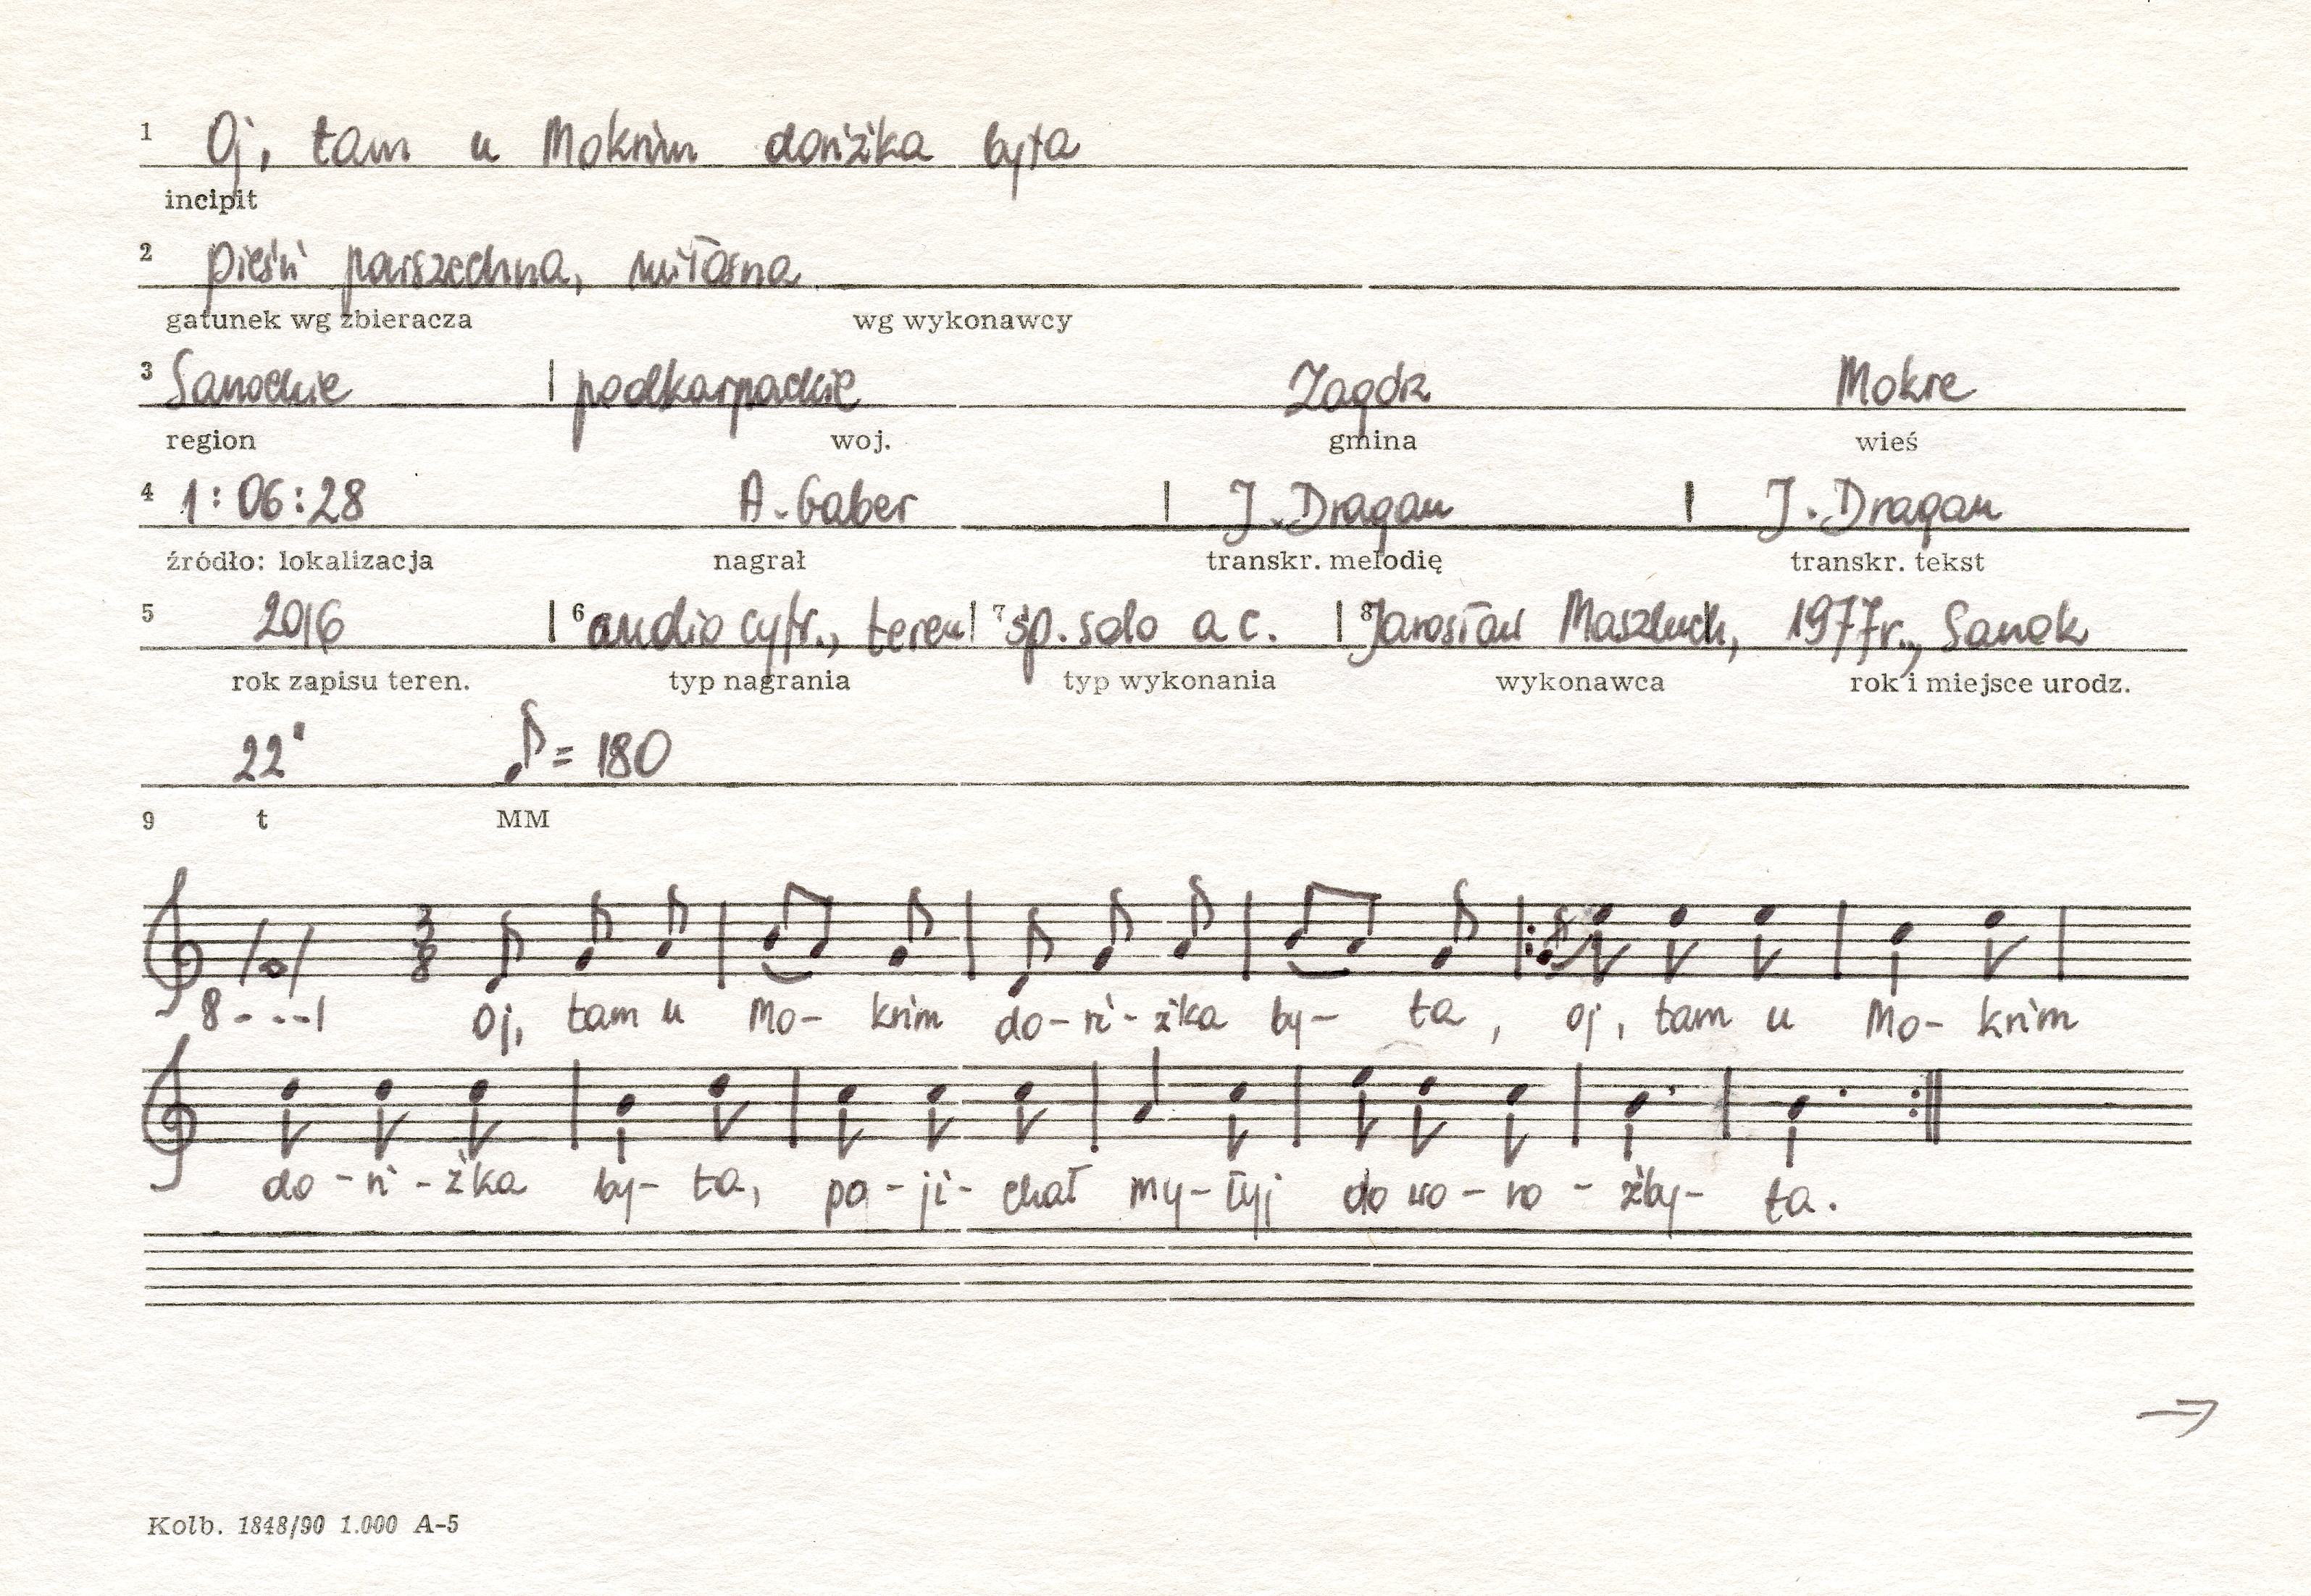 1 Oj, tam u Mokrim doriżka była
incipit
2 pieśń powszechna, miłosna
gatunek wg zbieracza wg wykonawcy
3 Sanockie | podkarpackie Zagórz Mokre
region woj. gmina wieś
4 1:06:28 A. Gaber | J. Dragan | J. Dragan
źródło: lokalizacja nagrał transkr. melodię transkr. tekst
5 2016 | 6 audio cyfr., teren | 7 śp. solo a c. | 8 Jarosław 1977r., Sanok
rok zapisu teren. typ nagrania typ wykonania wykonawca rok i miejsce urodz.
22" ♪ = 180
9 t MM
3
8
8---1 Oj, tam u Mo- krim do-ri-żka by- ła, oj, tam u Mo- krim
do-ri-żka by- ła, pa-ji- chał my-łyj do wo-ro-żby- ta.
→
Kolb. 1848/90 1.000 A-5